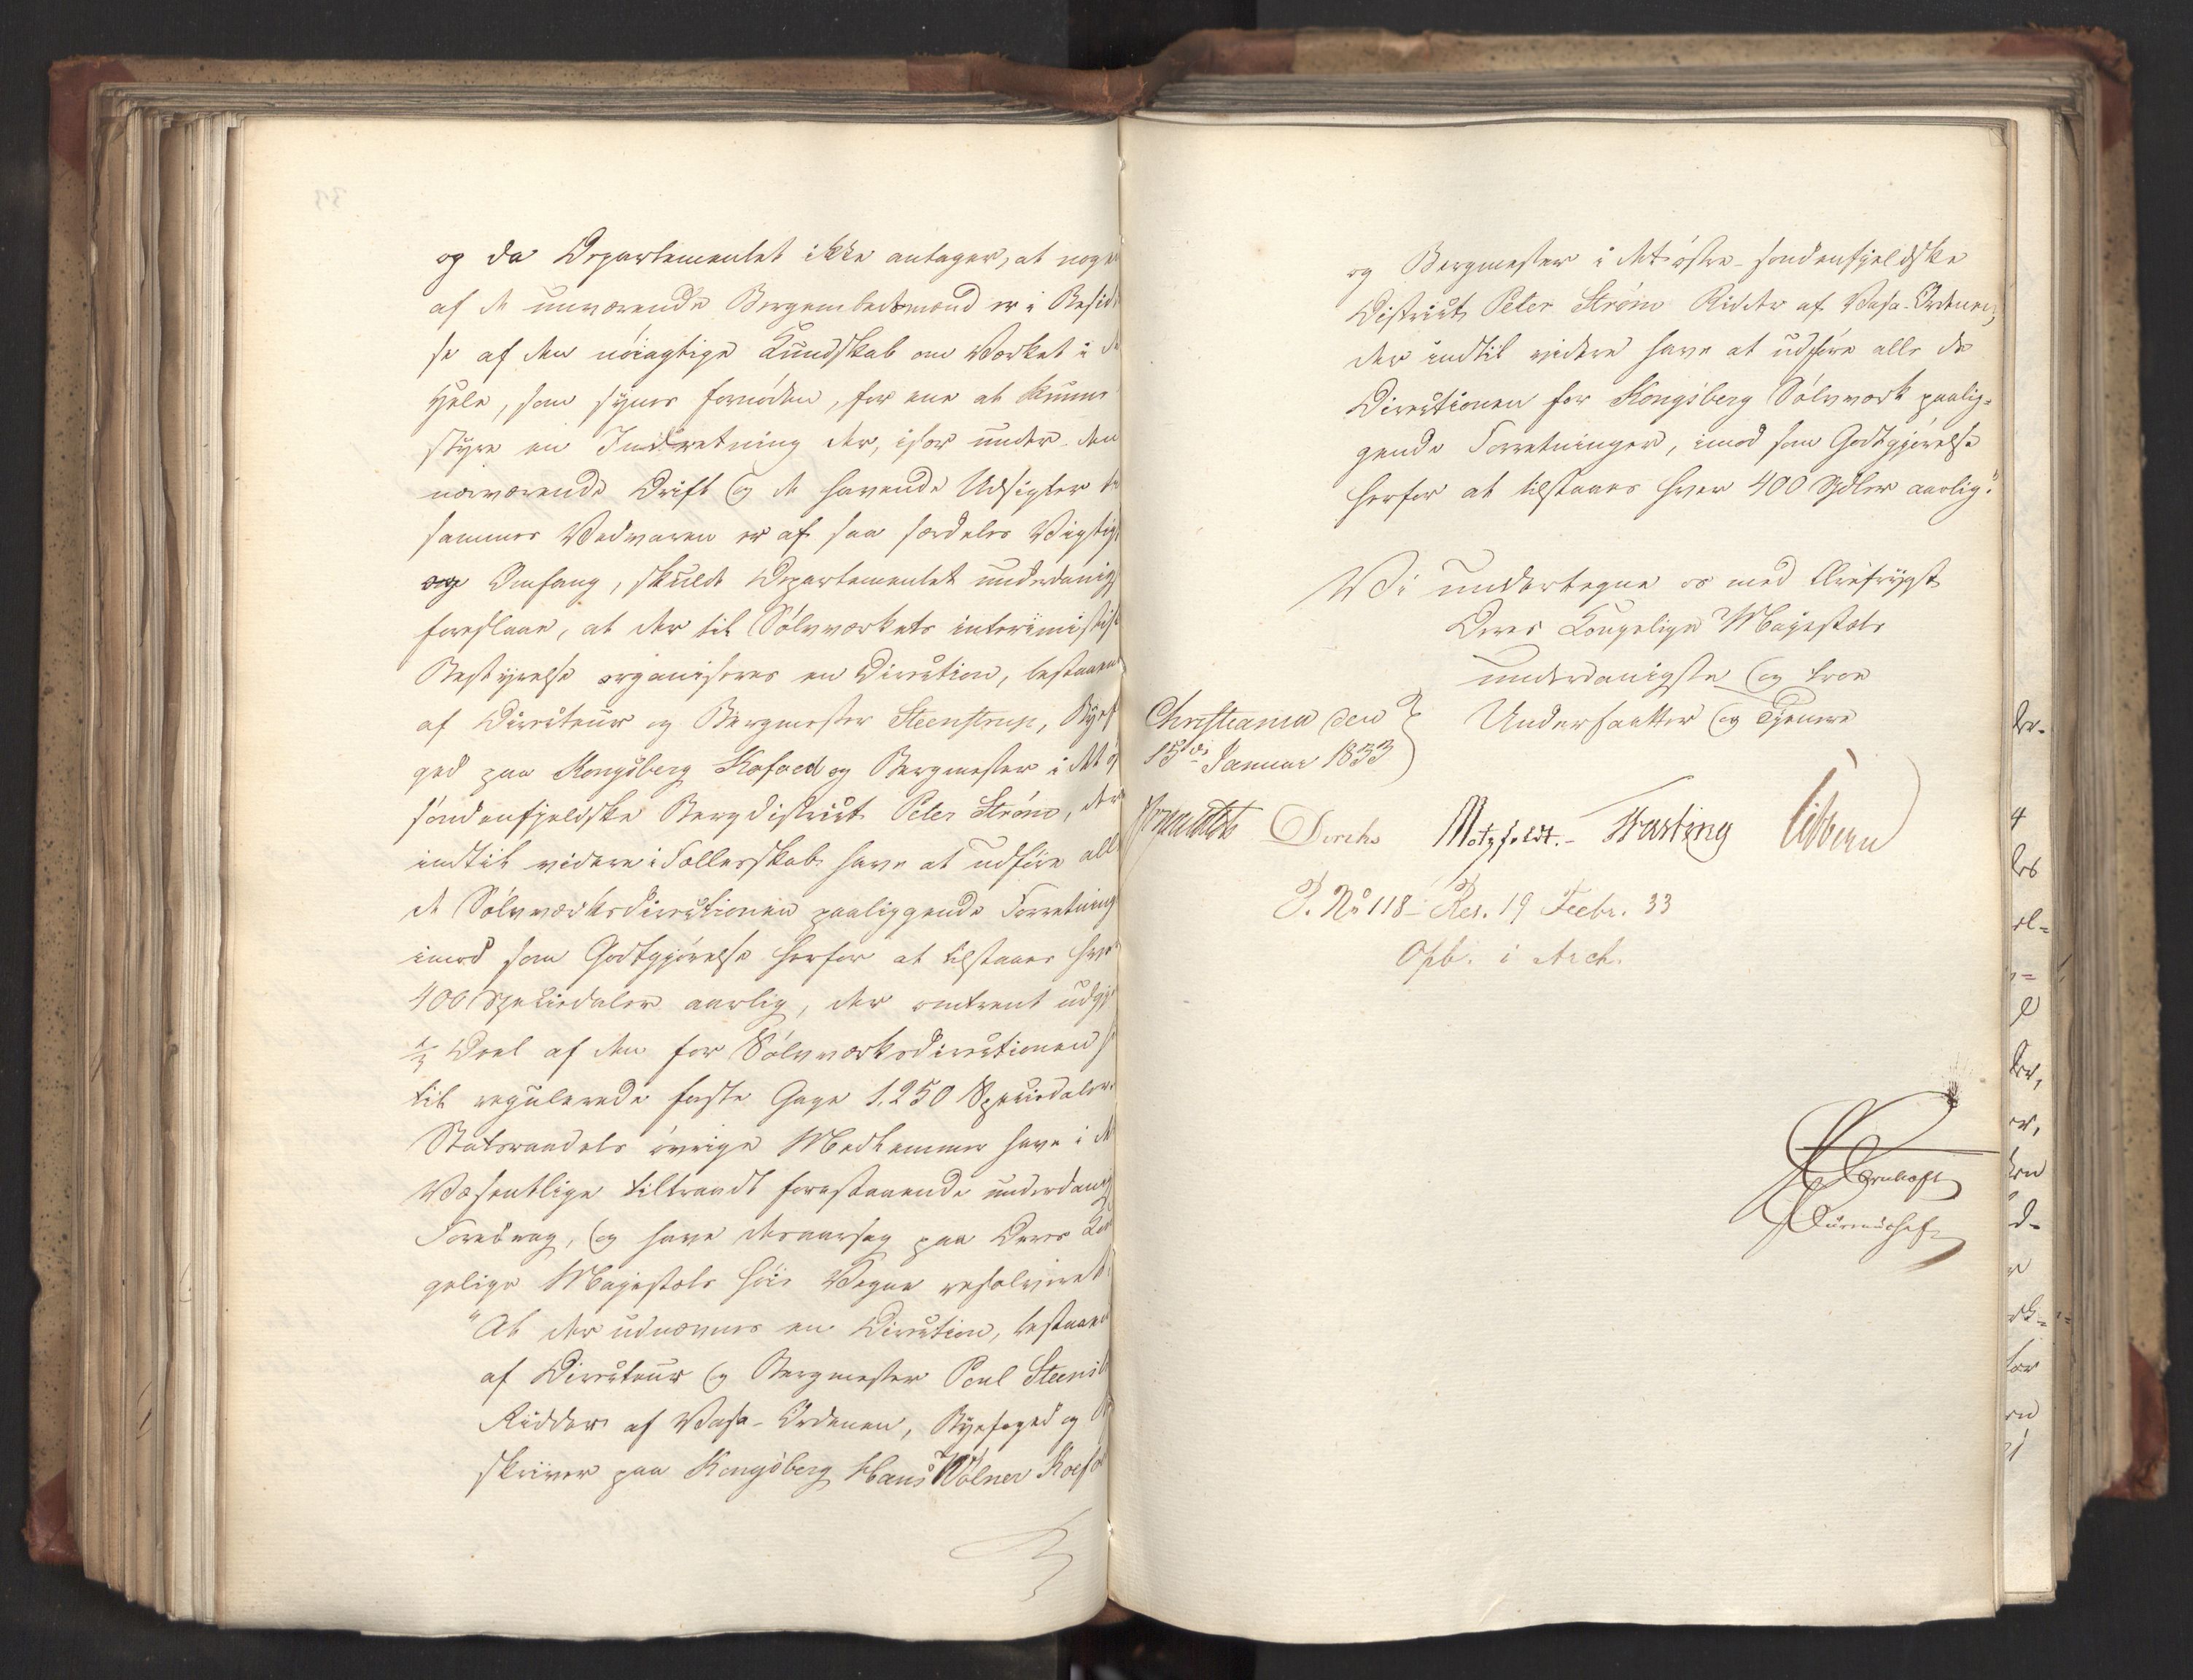 og da Departementet ikke antager, at nogen
af de nuværende Bergembedsmænd er i Besid-
se af den nöiagtige Kundskab om Værket i det
Hele, som synes fornöden, for ene at kunne
styre en Indretning der, især under den
nærværende Drift og de havende Udsigter til
sammes Vedvaren er af saa særdeles Vigtighed
og Omfang, skulde Departementet underdanigst
foreslaae, at der til Sölvværkets interimistiske
Bestyrelse organiseres en Direction, bestaaende
af Directeur og Bergmester Steenstrup, Byefo
ged paa Kongsberg Kofoed og Bergmester i det ös
söndenfjeldske Bergdistrict Peter Ström, der
indtil videre i Fællesskab have at udföre alle
de Sölvværksdirectionen paaliggende Forretninger
imod som Godtgjörelse herfor at tilstaaes hver
400 Speciedaler aarlig, der omtrent udgjör
1/3 Deel af den for Sölvværksdirectionen
til regulerede faste Gage 1,250 Speciedaler.
Statsraadets övrige Medlemmer have i det
Væsentlige tiltraadt forestaaende underdanige
Foredrag, og have desaarsag paa Deres Kon
gelige Majestæts höie Vegne resolveret:
"At der udnævnes en Direction, bestaaende
af Directeur og Bergmester Poul Steenst
Ridder af Vasa-Ordenen, Byefoged og
skriver paa Kongsberg Hans Wölner Koefoed
og Bergmester i det östre-söndenfjeldske
District Peter Ström Ridder af Vasa-Ordenen,
der indtil videre have at udföre alle de
Directionen for Kongsberg Sölvværk paalig-
gende Forretninger, imod som Godtgjörelse
herfor at tilstaaes hver 400 Spdlr aarlig."
Vi undertegne os med Ærefrygt
Deres Kongelige Majestæts
underdanigste og troe
Undersaatter og Tjenere
Christiania den
15de Januar 1833
Diriks Motzfeldt.- Fasting Sibbern
J. No 118 - Res. 19 Febr. 33
Opb. i Arch.